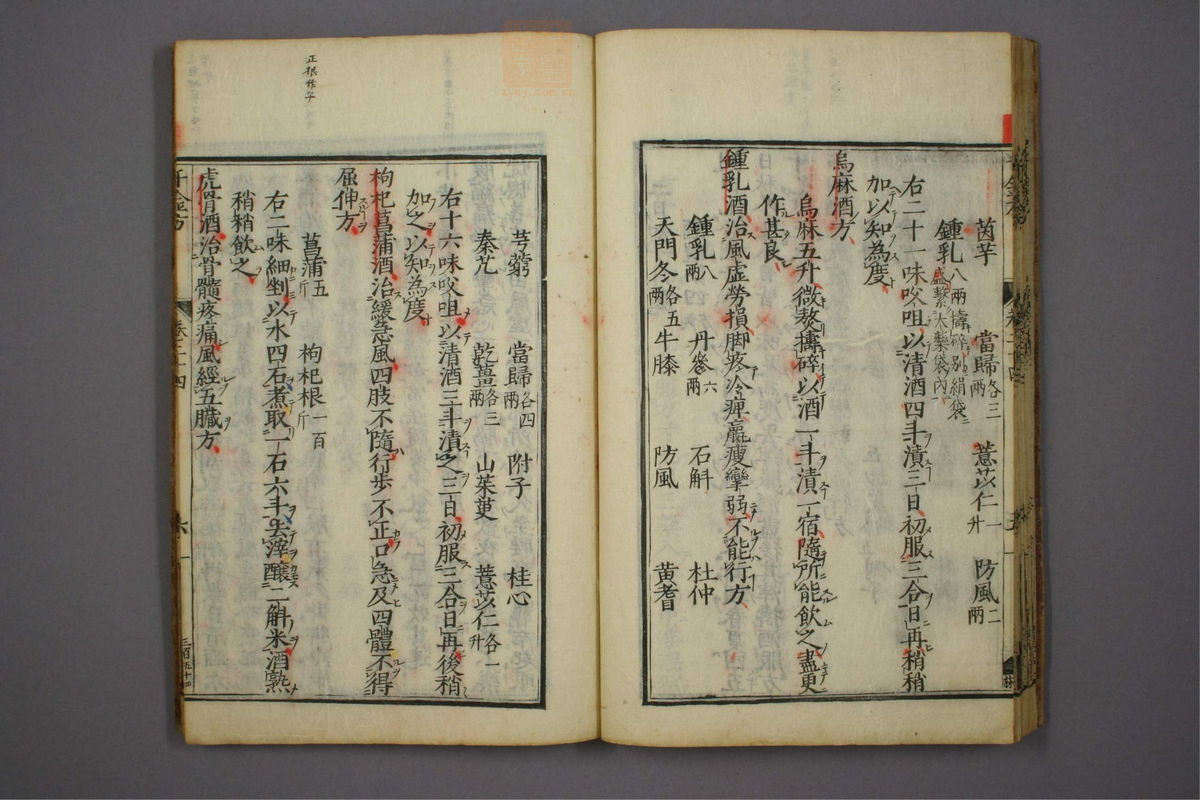 茵芋 當歸各三兩 薏苡仁一升 防風二兩
鍾乳八兩擣碎別絹袋盛繫大藥袋內
右二十一味㕮咀以清酒四斗漬三日初服三合日再稍稍
加以知為度
烏麻酒方
烏麻五升微熬擣碎以酒一斗漬一宿隨所能飲之盡更
作甚良
鍾乳酒治風虛勞損脚疼冷痺羸瘦攣弱不能行方
鍾乳八兩 丹參六兩 石斛 杜仲
天門冬各五兩 牛膝 防風 黃耆
芎藭 當歸各四兩 附子 桂心
秦艽 乾薑各三兩 山茱萸 薏苡仁各一升
右十六味㕮咀以清酒三斗漬之三日初服三合日再後稍
加之以知為度
枸杞菖蒲酒治緩急風四肢不隨行步不正口急及四體不得
屈伸方
菖蒲五斤 枸杞根一百斤
右二味細剉以水四石煮取一石六斗去滓釀二斛米酒熟
稍稍飲之
虎骨酒治骨髓疼痛風經五臟方
正根作子
千金方 卷二十四 六 三百五十四